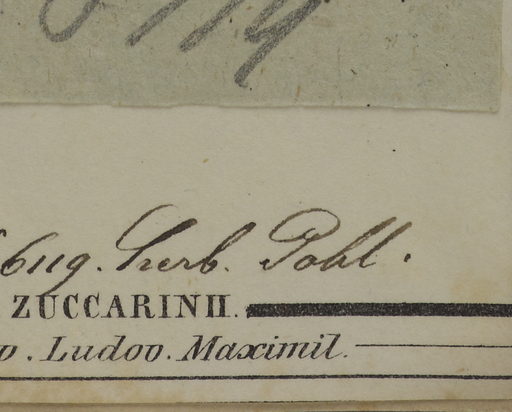 6119
6119. Herb. Pohl.
ZUCCARINII.
Ludov. Maximil.